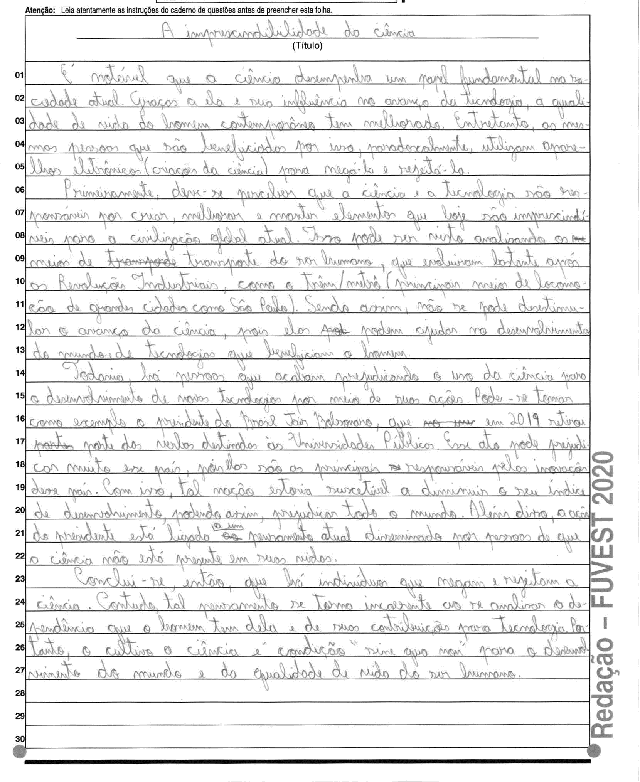 Atenção: Leia atentamente as instruções do caderno de questões antes de preencher esta folha.
A imprescindibilidade da ciência
(Título)
01 É notável que a ciência desempenha um papel fundamental na so-
02 ciedade atual. Graças a ela e sua influência no avanço da tecnologia, a quali-
03 dade de vida do homem contemporâneo tem melhorado. Entretanto, as mes-
04 mas pessoas que são beneficiadas por isso, paradoxalmente, utilizam apare-
05 lhos eletrônicos (criações da ciência) para negá-la e rejeitá-la.
06 Primeiramente, deve-se perceber que a ciência e a tecnologia são res-
07 ponsáveis por criar, melhorar e manter elementos que hoje são imprescindí-
08 veis para a civilização global atual. Isso pode ser visto analisando os
09 meios de transporte do ser humano, que evoluíram bastante após
10 as Revoluções Industriais, como o trem/metrô (principais meios de locomo-
11 ção de grandes cidades como São Paulo). Sendo assim, não se pode destimu-
12 lar o avanço da ciência, pois elas podem ajudar no desenvolvimento
13 do mundo e de tecnologias que beneficiam o homem.
14 Todavia há pessoas que acabam prejudicando o uso da ciência para
15 o desenvolvimento de novas tecnologias por meio de suas ações. Pode-se tomar
16 como exemplo o presidente do Brasil Jair Bolsonaro, que em 2019 retirou
17 parte das verbas destinadas às Universidades Públicas. Esse ato pode prejudi
18 car muito esse país, pois elas são as principais responsáveis pelas inovações
19 desse país. Com isso, tal nação estaria suscetível a diminuir o seu índice
20 de desenvolvimento podendo assim, prejudicar todo o mundo. Além disso, a ação
21 do presidente está ligada a um pensamento atual disseminado por pessoas de que
22 a ciência não está presente em suas vidas.
23 Conclui-se, então, que há indivíduos que negam e rejeitam a
24 ciência. Contudo, tal pensamento se torna incoerente ao se analisar a de-
25 pendência que o homem tem dela e de suas contribuições para tecnologia. Por-
26 tanto, o cultivo a ciência é condição "sine qua non" para o desenvol
27 vimento do mundo e da qualidade de vida do ser humano.
28
29
30
Redação – FUVEST 2020